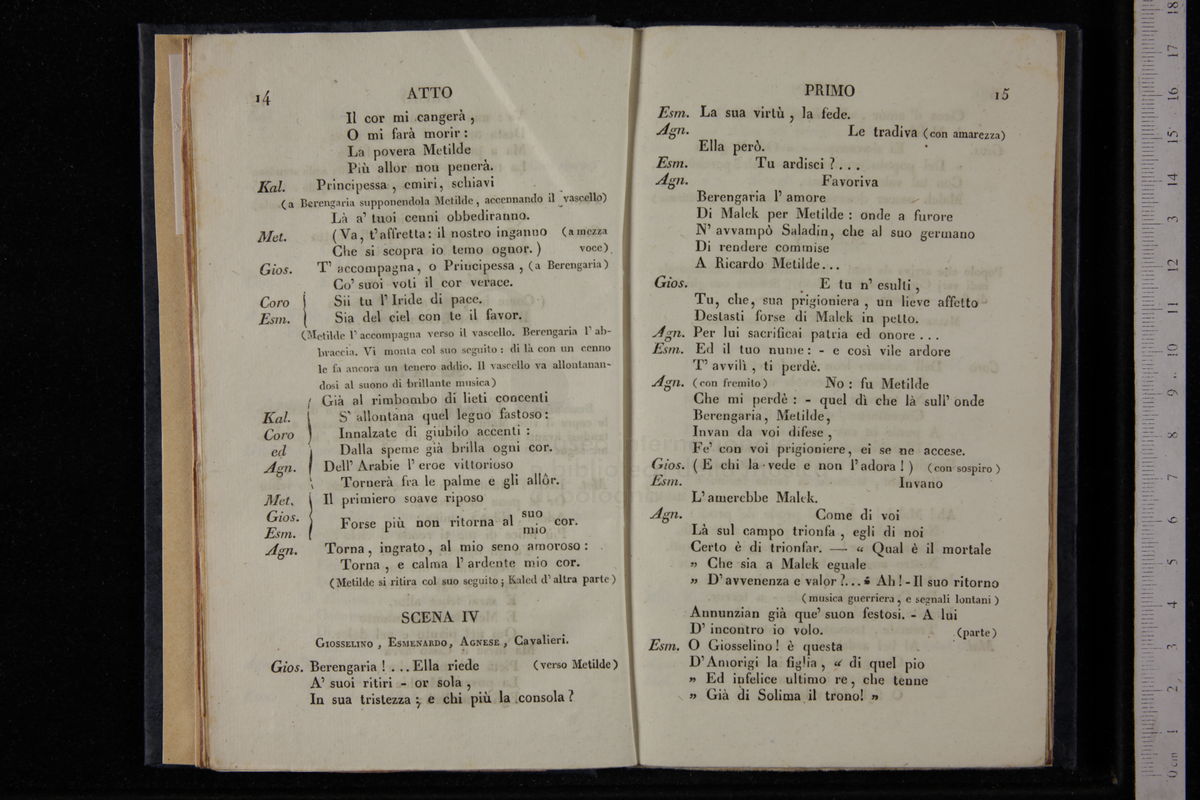 14
ATTO
Il cor mi cangerà ,
O mi farà morir :
La povera Metilde
Più allor non penerà.
Kal. Principessa , emiri, schiavi
(a Berengaria supponendola Metilde, accennando il vascello)
Là a' tuoi cenni obbediranno.
Met. (Va, t'affretta: il nostro inganno (a mezza
Che si scopra io temo ognor. ) voce)
Gios. T' accompagna, o Principessa , (a Berengaria)
Co' suoi voti il cor verace.
Coro Sii tu l' Iride di pace.
Esm. Sia del ciel con te il favor.
(Metilde l'accompagna verso il vascello. Berengaria l' ab-
braccia. Vi monta col suo seguito : di là con un cenno
le fa ancora un tenero addio. Il vascello va allontanan-
dosi al suono di brillante musica)
Già al rimbombo di lieti concenti
Kal. S' allontana quel legno fastoso :
Coro Innalzate di giubilo accenti :
ed Dalla speme già brilla ogni cor.
Agn. Dell' Arabie l' eroe vittorioso
Tornerà fra le palme e gli allôr.
Met. Il primiero soave riposo
Gios. Forse più non ritorna al suo cor.
Esm. mio
Agn. Torna , ingrato, al mio seno amoroso :
Torna , e calma l' ardente mio cor.
(Metilde si ritira col suo seguito ; Kaled d' altra parte)
SCENA IV
Giosselino , Esmenardo, Agnese , Cavalieri.
Gios. Berengaria ! . . . Ella riede (verso Metilde)
A' suoi ritiri - or sola ,
In sua tristezza ; e chi più la consola ?
PRIMO
15
Esm. La sua virtù , la fede.
Agn. Le tradiva (con amarezza)
Ella però.
Esm. Tu ardisci ? . . .
Agn. Favoriva
Berengaria l' amore
Di Malek per Metilde : onde a furore
N' avvampò Saladin, che al suo germano
Di rendere commise
A Ricardo Metilde...
Gios. E tu n' esulti ,
Tu, che, sua prigioniera , un lieve affetto
Destasti forse di Malek in petto.
Agn. Per lui sacrificai patria ed onore . . .
Esm. Ed il tuo nume : - e così vile ardore
T' avvilì , ti perdè.
Agn. (con fremito) No : fu Metilde
Che mi perdè : - quel dì che là sull' onde
Berengaria, Metilde,
Invan da voi difese ,
Fe' con voi prigioniere, ei se ne accese.
Gios. ( E chi la vede e non l'adora ! ) (con sospiro )
Esm. Invano
L' amerebbe Malek.
Agn. Come di voi
Là sul campo trionfa , egli di noi
Certo è di trionfar. — « Qual è il mortale
» Che sia a Malek eguale
» D' avvenenza e valor ?... « Ah ! - Il suo ritorno
( musica guerriera , e segnali lontani )
Annunzian già que' suon festosi. - A lui
D' incontro io volo. (parte)
Esm. O Giosselino ! è questa
D' Amorigi la figlia , « di quel pio
» Ed infelice ultimo re, che tenne
» Già di Solima il trono! »